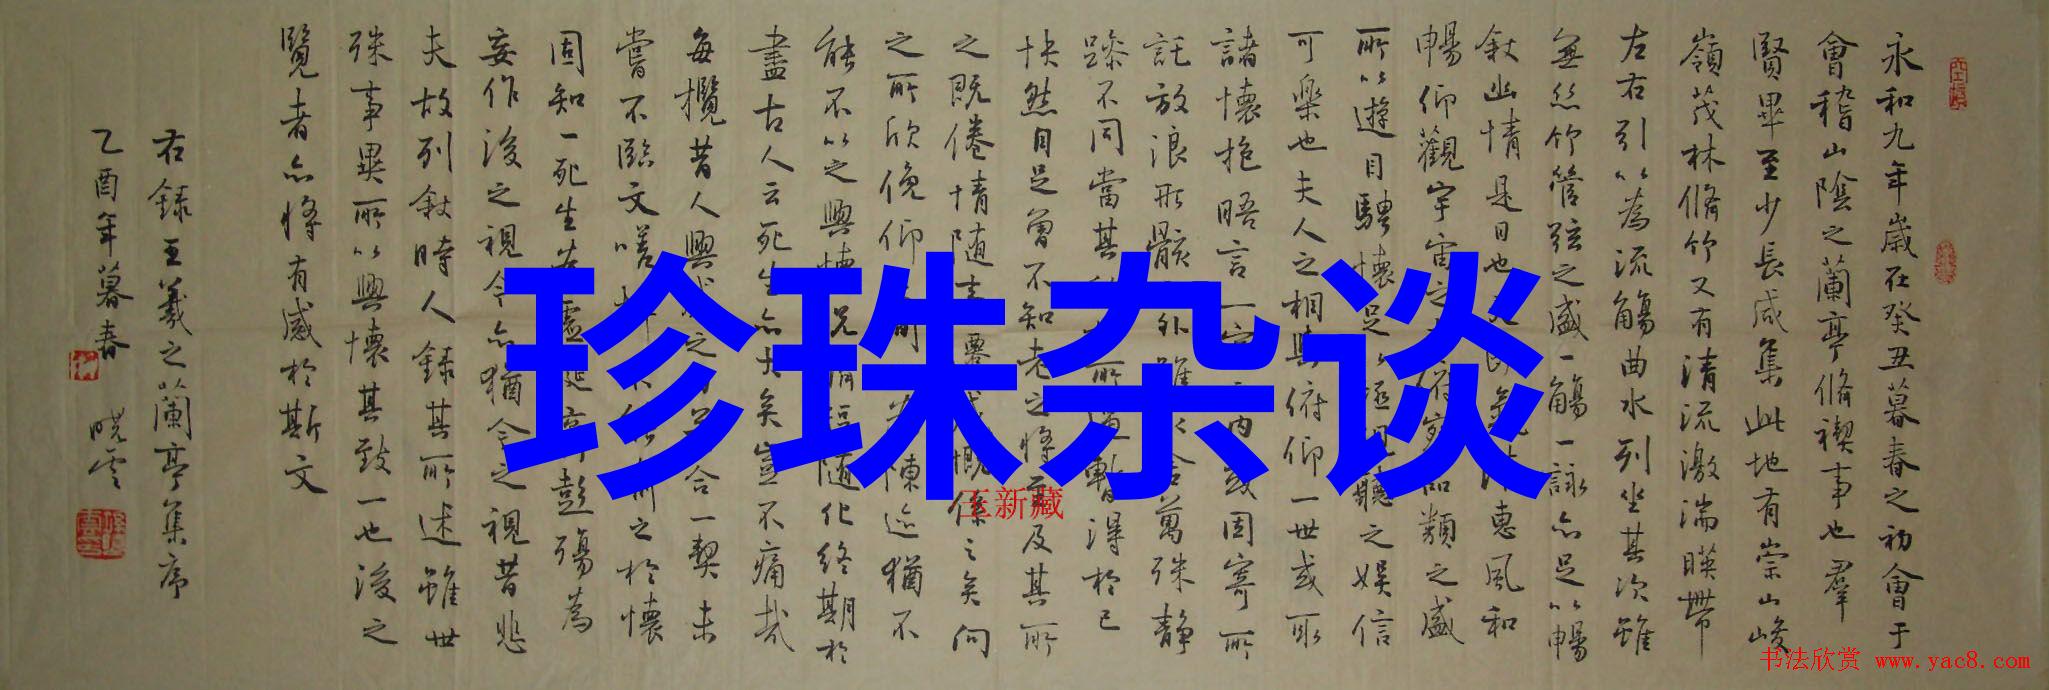 永和九年歲在癸丑暮春之初會于
會稽山陰之蘭亭脩禊事也羣
賢畢至少長咸集此地有崇山峻
嶺茂林脩竹又有清流激湍暎帶
左右引以為流觴曲水列坐其次雖
無絲竹管弦之盛一觴一詠亦足以暢
敘幽情是日也天朗氣清惠風和
暢仰觀宇宙之 府察品類之盛
所以遊目騁懷足以極視聽之娛信
可樂也夫人之相與俯仰一世或取
諸懷抱晤言一室之內或因寄所
託放浪形骸之外雖取舍萬殊静
躁不同當其 所遇暫得於己
快然自足曾不知老之將至及其所
之既倦情随事遷感慨係之矣向
之所欣俛仰之間以為陳迹猶不
能不以之興懷況脩短随化終期於
盡古人云死生亦大矣豈不痛哉
每攬昔人興感之由若合一契未
嘗不臨文嗟悼不能 之於懷
固知一死生為虛誕齊彭殤為
妄作後之視今亦猶今之視昔悲
夫故列敘時人錄其所述雖世
殊事異所以興懷其致一也後之
覽者亦將有感於斯文
右錄王羲之蘭亭集序
乙酉年暮春 曉雲
珍珠杂谈
王新藏
书法欣赏 www.yac8.com